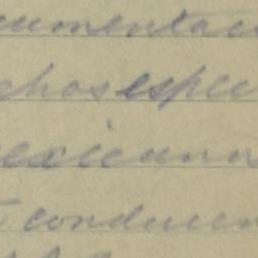 cumentac
chos espec
exicano
conducen